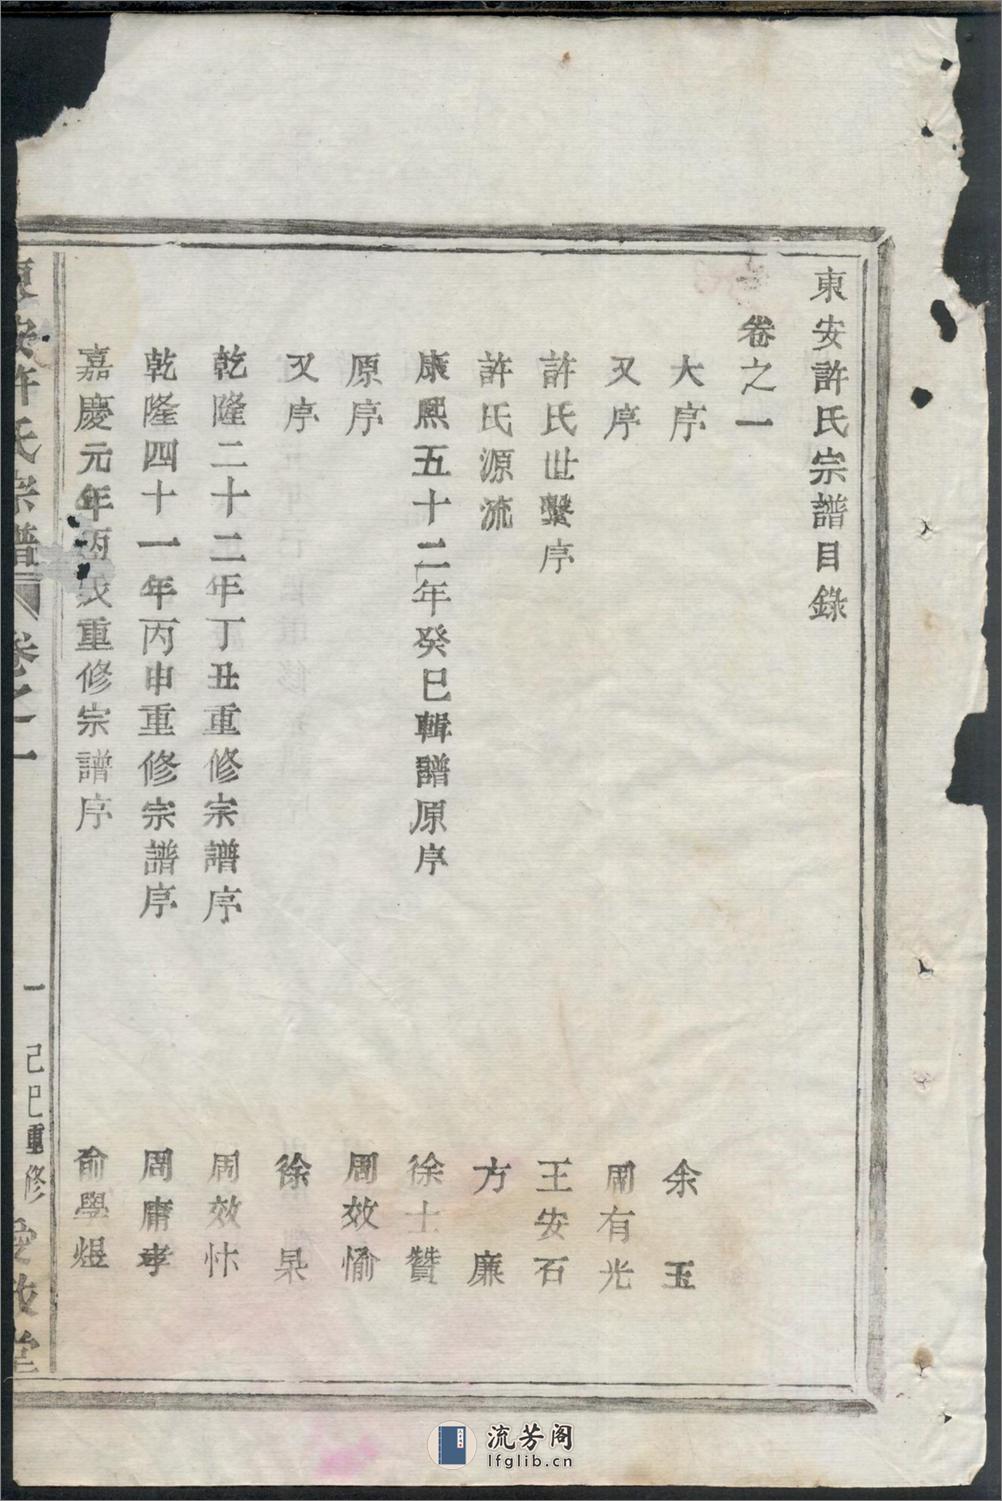 東安許氏宗譜目錄
卷之一
大序 余玉
又序 周有光
許氏世繫序 王安石
許氏源流 方廉
康熙五十二年癸巳輯譜原序 徐士贊
原序 周效愉
又序 徐杲
乾隆二十二年丁丑重修宗譜序 周效忭
乾隆四十一年丙申重修宗譜序 周庸孝
嘉慶元年丙辰重修宗譜序 俞學煜
東安許氏宗譜 卷之一 一 己巳重修 愛敬堂
流芳阁
lfglib.cn